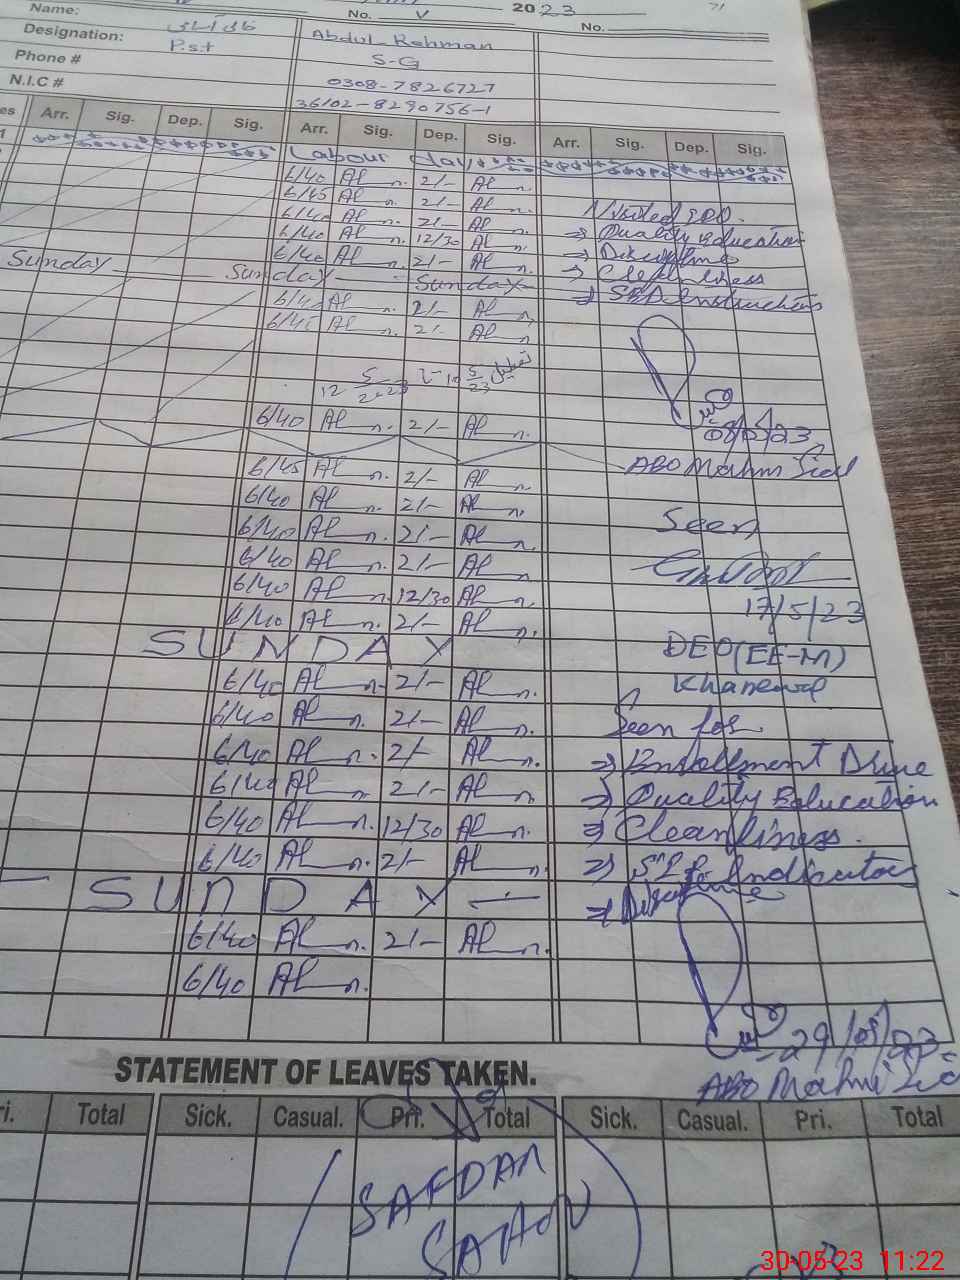 Name:
No. V 2023 No.
Designation: P.s.t Abdul Rehman
S-G
Phone # 0308-7826727
N.I.C # 36102-8290756-1
Arr. Sig. Dep. Sig. Arr. Sig. Dep. Sig. Arr. Sig. Dep. Sig.
Labour day
6/40 Al 2/- Al
6/45 Al 2/- Al
6/40 Al 2/- Al
6/40 Al 12/30 Al
6/40 Al 2/- Al
Sunday Sunday Sunday
6/40 Al 2/- Al
6/45 Al 2/- Al
Quality Education
Discipline
Cleanliness
تعطیل
6/40 Al 2/- Al
6/45 Al 2/- Al
6/40 Al 2/- Al
6/40 Al 2/- Al
6/40 Al 2/- Al
6/40 Al 12/30 Al
6/40 Al 2/- Al
Seen
17/5/23
DEO (EE-M)
Khanewal
SUNDAY
6/40 Al 2/- Al
6/40 Al 2/- Al
6/40 Al 2/- Al
6/40 Al 2/- Al
6/40 Al 12/30 Al
6/40 Al 2/- Al
Seen for
Enrollment Drive
Quality Education
Cleanliness
Indicator
Discipline
SUNDAY
6/40 Al 2/- Al
6/40 Al
29/05/23
STATEMENT OF LEAVES TAKEN.
Pri. Total Sick. Casual. Pri. Total Sick. Casual. Pri. Total
SAFDAR
30-05-23 11:22